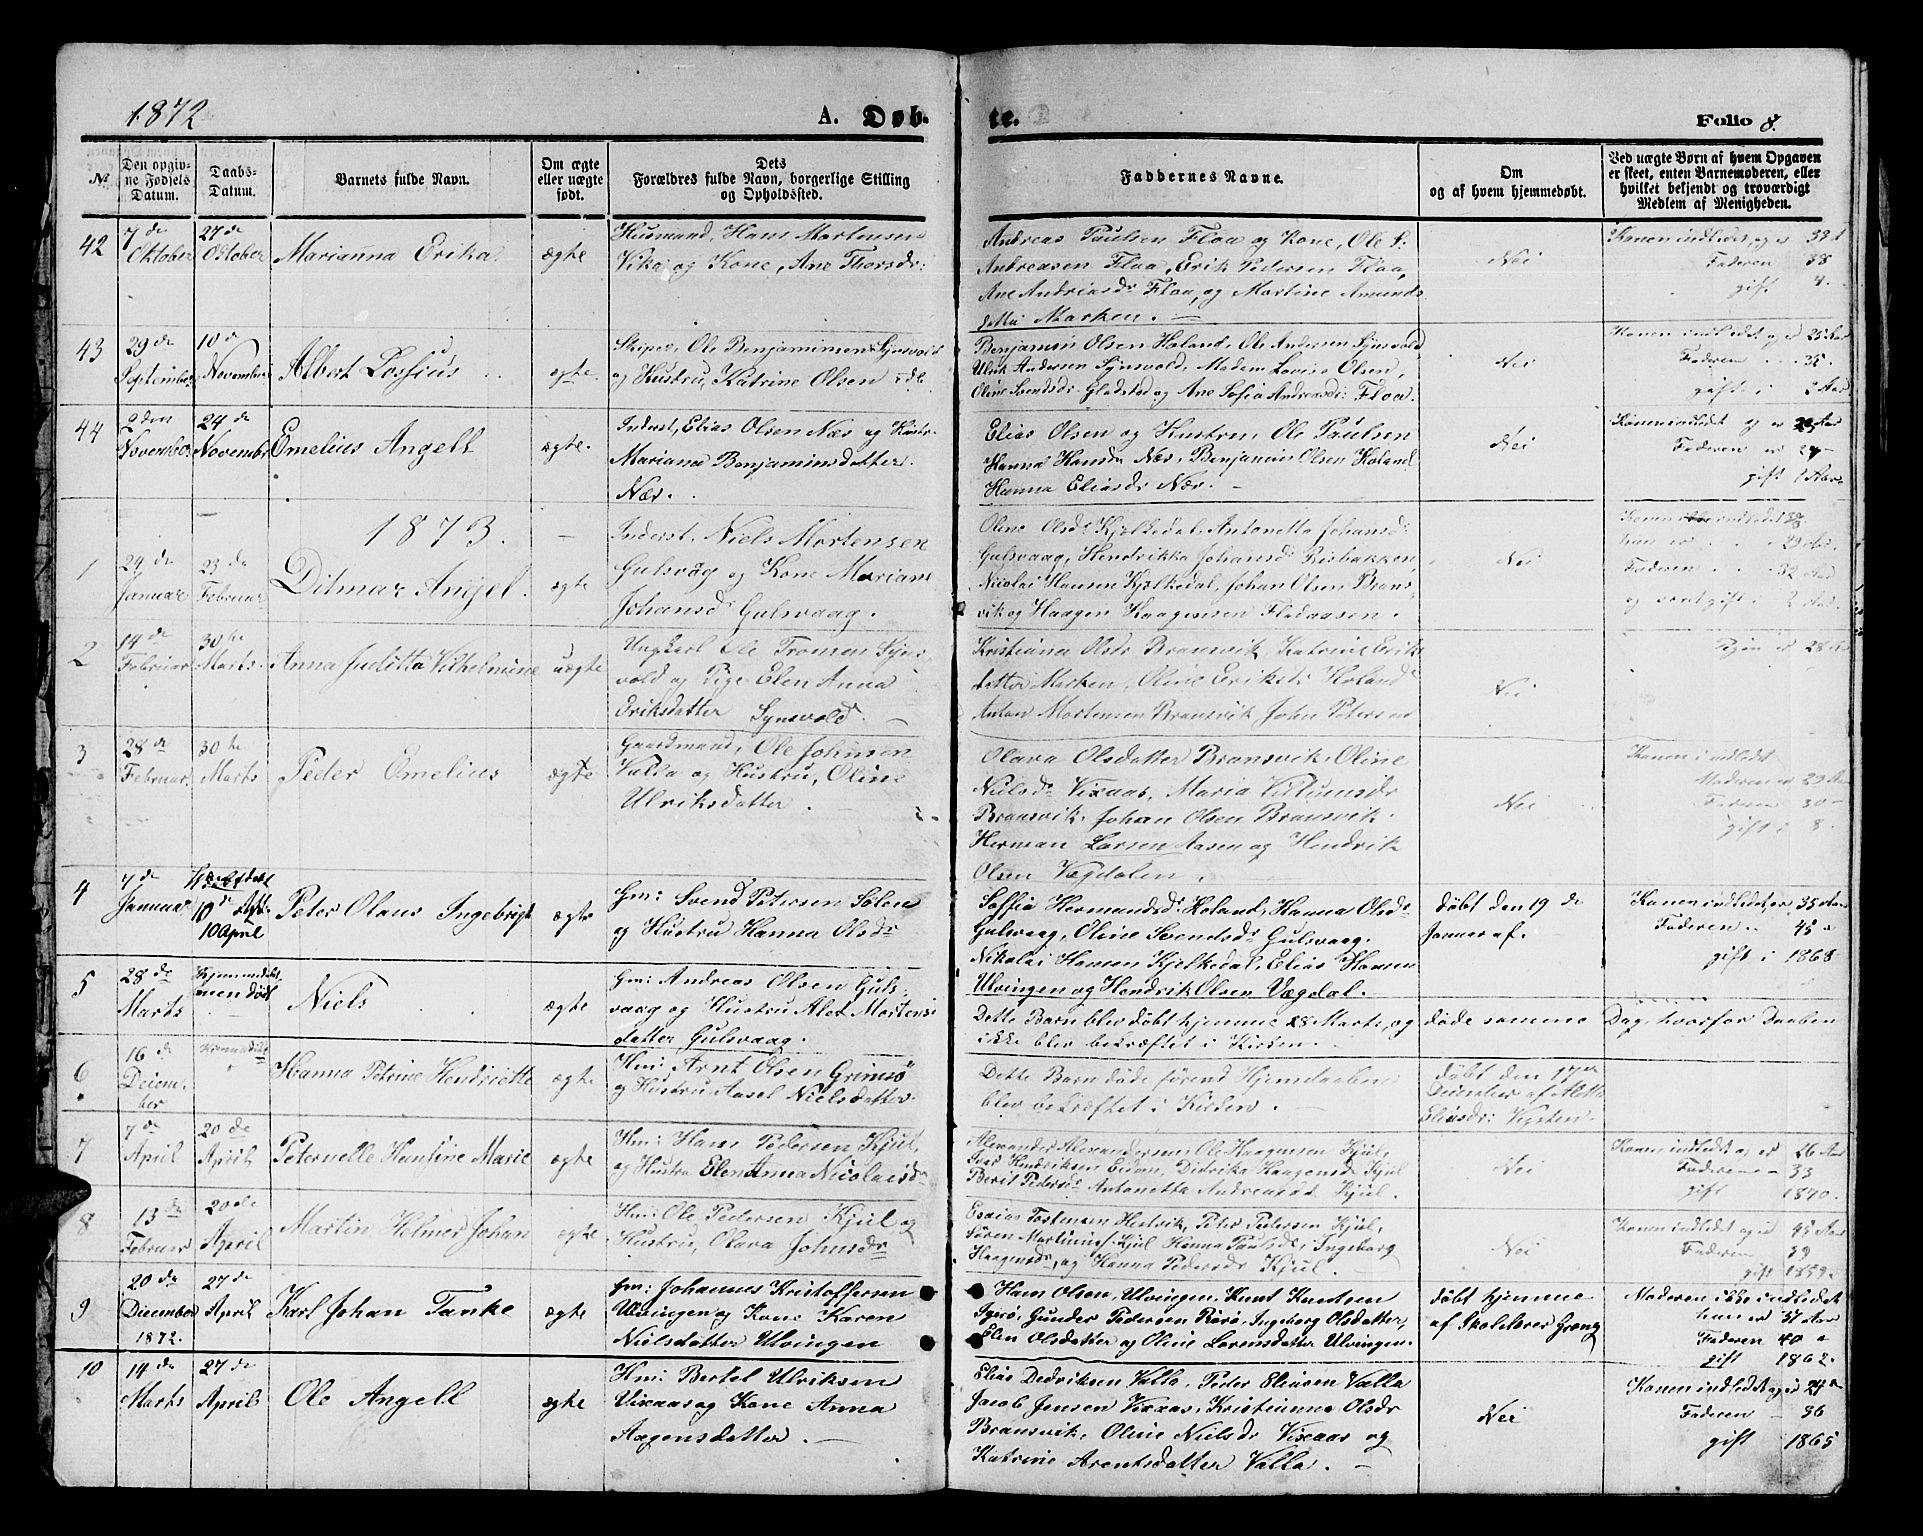 1872
A. Døb-
te.
Folio 8.
№
Den opgiv-
ne Fødsels
Datum.
Daabs-
Datum.
Barnets fulde Navn.
Om ægte
eller uægte
født.
Dets
Forældres fulde Navn, borgerlige Stilling
og Opholdssted.
Faddernes Navne.
Om
og af hvem hjemmedøbt.
Ved uægte Børn af hvem Opgaven
er skeet, enten Barnemoderen, eller
hvilket bekjendt og troværdigt
Medlem af Menigheden.
42
7 de
Oktober
27 de
Oktober
Marianna Erika
ægte
Husmand, Hans Mortensen
Vika og Kone, Ane Thorsdr:
Andreas Paulsen Floa og Kone, Ole
Andreasen Floa, Erik Pedersen Floa,
Ane Andreasdr Floa, og Martine Amunds
datter Marken. —
Nei
Konen indledet, og er
Faderen 38
gift 4.
43
29 de
September
10 de
November
Albert Lossius
egte
Skiper, Ole Benjaminsen Synsvold
og Hustru, Katrine Olsen
Benjamin Olsen Holand, Ole Andersen Synsvold
Ulrik Andersen Synsvold, Madem Lovise Olsen,
Oline Svendsdr Gladstad og Ane Sofia Andreasdr: Floa.
Nei
Konen indledet og er 25 Aar
Faderen 35
gift i 2 Aar
44
2 den
November
24 de
November
Emelius Angell
ægte.
Inderst, Elias Olsen Næs og Hustr.
Mariana Benjaminsdatter
Næs.
Elias Olsen og Hustru, Ole Paulsen
Hanna Hansdr Næs, Benjamin Olsen Holand
Hanna Eliasdr Næs. —
Nei
Konen indledt og er Aar
Faderen er 24 —
gift 1 Aar
1873.
1
29 de
Januar
23 de
Februar
Ditmar Angel.
ægte
Inderst. Niels Mortensen
Gulsvåg og Kone Mariane
Johansd Gulsvaag.
Oline Olsdr Kjelkedal, Antonetta Johansd:
Gulsvaag, Hendrikka Johansdr Risbakken,
Nicolai Hansen Kjelkedal, Johan Olsen Brans
vik og Haagen Haagensen Fladaasen.
Nei
indledet
hun er 29 Aar.
Faderen 32 Aar
og været gift i 2 Aar.
2
14 de
Februar
30 te
Marts
Anna Juditta Vilhelmine
uægte
Ungkarl Ole Tronsen Syns
vold og Pige Elen Anna
Eriksdatter Synsvold. —
Kristiana Olsdr Bransvik, Katrine Erik
datter Marken, Oline Eriksdr Holand
Anton Mortensen Bransvik, John Petersen
Nei
Pigen er 28 Aar
3
28 de
Februar.
30 te
Marts
Peder Omelius
ægte
Gaardmand, Ole Johnsen
Valda og Hustru, Oline
Ulriksdatter. —
Olava Olsdatter Bransvik, Oline
Nielsdr Vixaas, Maria Villumsdr
Bransvik, Johan Olsen Bransvik.
Herman Larsen Aasen og Hendrik
Olsen Vægdalen.
Nei
Konen indledt
Moderen er 29 Aar
Faderen 30 —
gift i 8.
4
7 de
Januar
10 de
10 April
Peter Olaus Ingebrigt
ægte
Gm: Svend Petersen Solem
og Hustru Hanna Olsdr
Soffia Hermandsdr Holand, Hanna Olsdr
Gulsvaag, Oline Svendsdr Gulsvaag.
Nikolai Hansen Kjelkedal, Elias Hansen
Ulvingen og Hendrik Olsen Vægdal.
Døbt den 19 de
Januar af. —
Konen indledet er 35 Aar
Faderen 45
gift i 1868
5
28 de
Marts
Hjemmedøbt
men død
Niels
ægte
Gm: Andreas Olsen Guls
vaag og Hustru Alet Mortens
datter Gulsvaag.
Dette Barn blev døbt hjemme 28 Marts, og
ikke blev bekræftet i Kirken.
døde samme
Dag, hvorfor Daaben
6
16 de
Deiem-
ber
Hanna Petrine Hendriette
ægte
Hm: Arnt Olsen Grimsø
og Hustru Aasel Nielsdatter.
Dette Barn døde førend Hjemdaaben
blev bekræftet i Kirken. —
Døbt den 17 de
December af Aletta
Eliasdr: Visten.
7
7 de
April
20 de
April
Peternelle Hantine Marie
ægte
Hm: Hans Pedersen Kjul,
og Hustru Elen Anna Nicolaisdr
Alexander Alexandersen, Ole Haagensen Kjul,
Ivar Hendriksen Eidem, Didrika Haagensdr Kjul
Berit Pedersdr Antonetta Andreasdr Kjul.
Nei
Konen indledt og er 26 Aar
Faderen — 33
gift 1870.
8
13 de
Februar
20 de
April
Martin Helmer Johan
ægte
Hm: Ole Pedersen Kjul og
Hustru, Olava Johnsdr
Esaias Tostensen Hestvik, Peter Pedersen Kjul,
Søren Martinusen Kjul Hanna Paulsdr, Ingeborg
Haagensdr, og Hanna Pedersdr Kjul.
Nei
Konen indledt og er 45 Aar
Faderen 39
gift 1859.
9
20 de
Diecember
1872.
27 de
April
Karl Johan Tanke
ægte
Gm: Johannes Kristoffersen
Ulvingen og Kone Karen
Nielsdatter Ulvingen
Hans Olsen, Ulvingen, Knut Knutsen
Igerø, Gunder Pedersen Rørø, Ingeborg Olsdatter,
Elen Olsdatter og Oline Lorensdatter Ulvingen.
døbt hjemme
af Skolelærer Grong
Moderen ikke indledet
hun er 37 Aar
Faderen 40
gift 1862.
10
14 de
Marts
27 de
April
Ole Angell
ægte
Hm: Bertel Ulriksen
Vixaas og Kone Anna
Aagensdatter. —
Elias Dedriksen Valla, Peder Eliasen Valla
Jacob Jensen Vixaas, Kristianna Olsdr
Bransvik, Oline Nielsdr Vixaas og
Katrine Arentsdatter Valla. —
Nei
Konen indledt og er 24
Faderen — 36
gift 1865